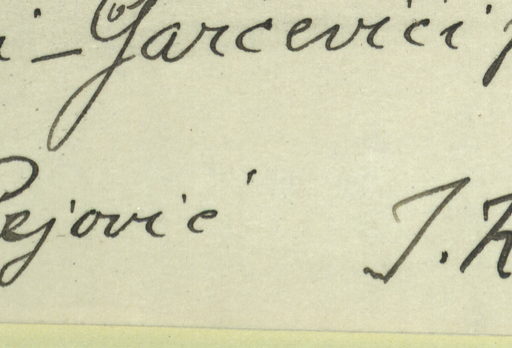 i - Garcevići
Pejović J. K